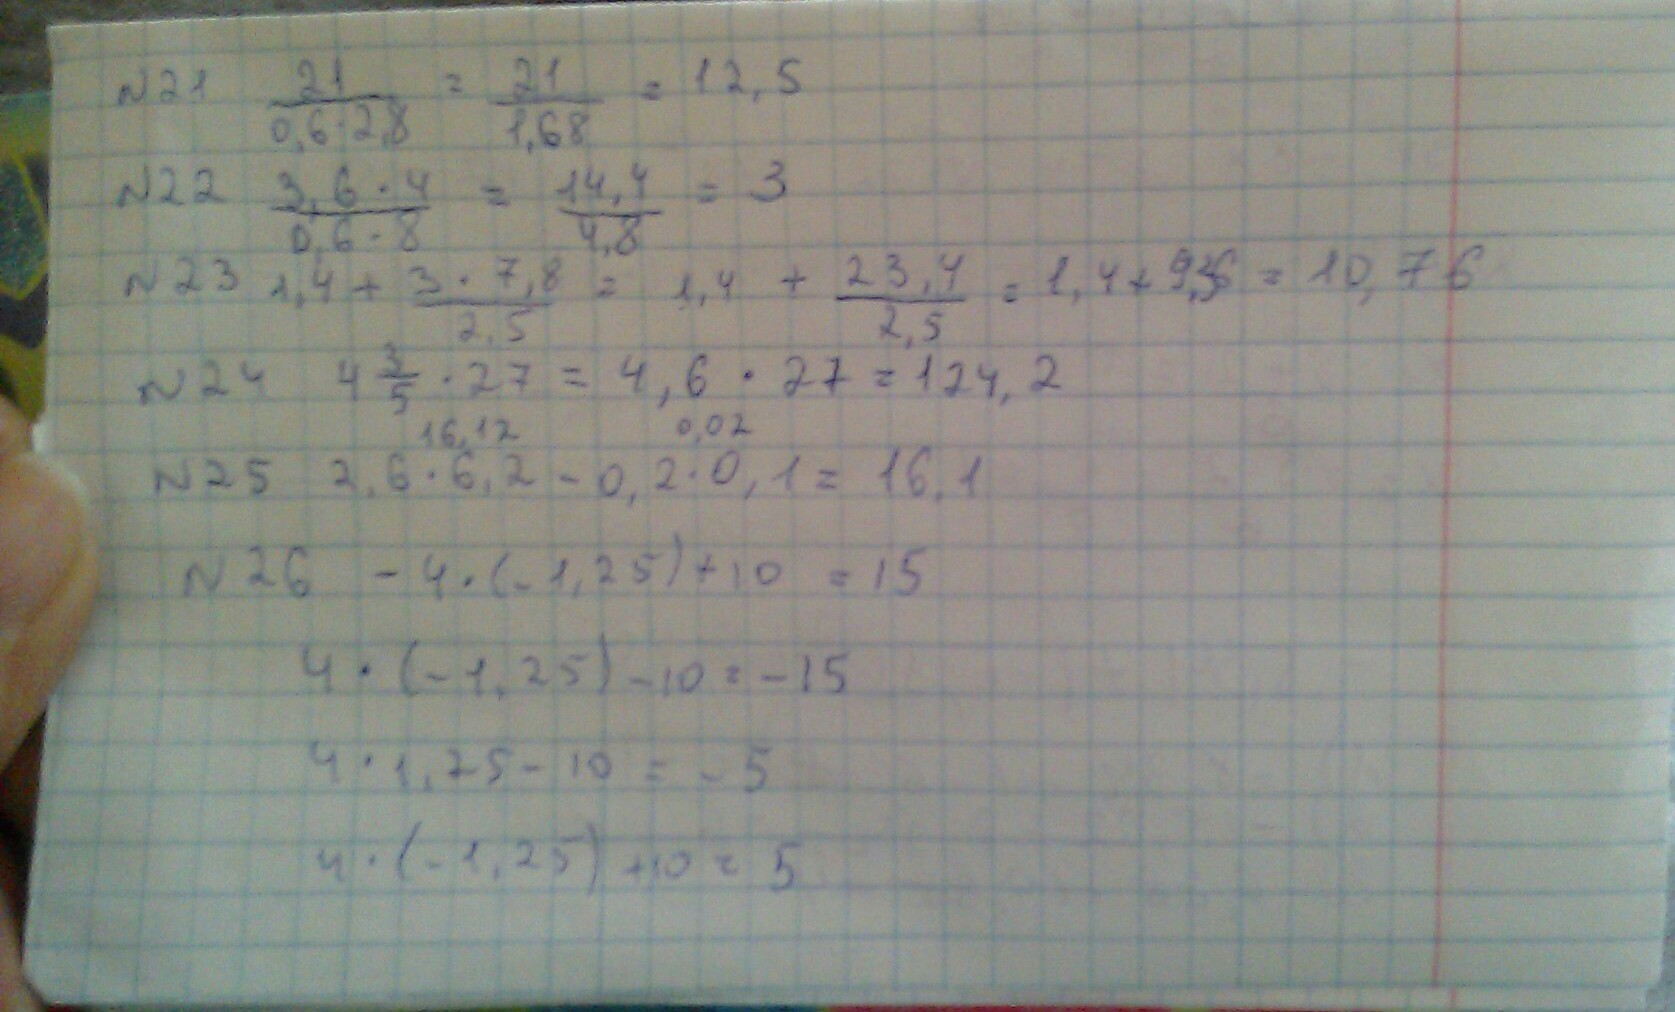 N21 21/(0,6·2,8) = 21/1,68 = 12,5
N22 (3,6·4)/(0,6·8) = 14,4/4,8 = 3
N23 1,4+(3·7,8)/2,5 = 1,4 + 23,4/2,5 = 1,4+9,36 = 10,76
N24 4 3/5 · 27 = 4,6 · 27 = 124,2
16,12 0,02
N25 2,6·6,2 - 0,2·0,1 = 16,1
N26 -4·(-1,25)+10 = 15
4·(-1,25)-10 = -15
4·1,25-10 = -5
4·(-1,25)+10 = 5